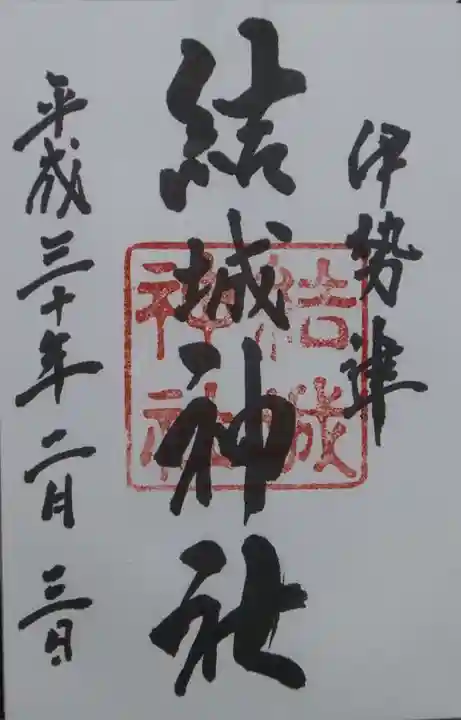 伊勢津
結城神社
結城
神社
平成三十年二月三日